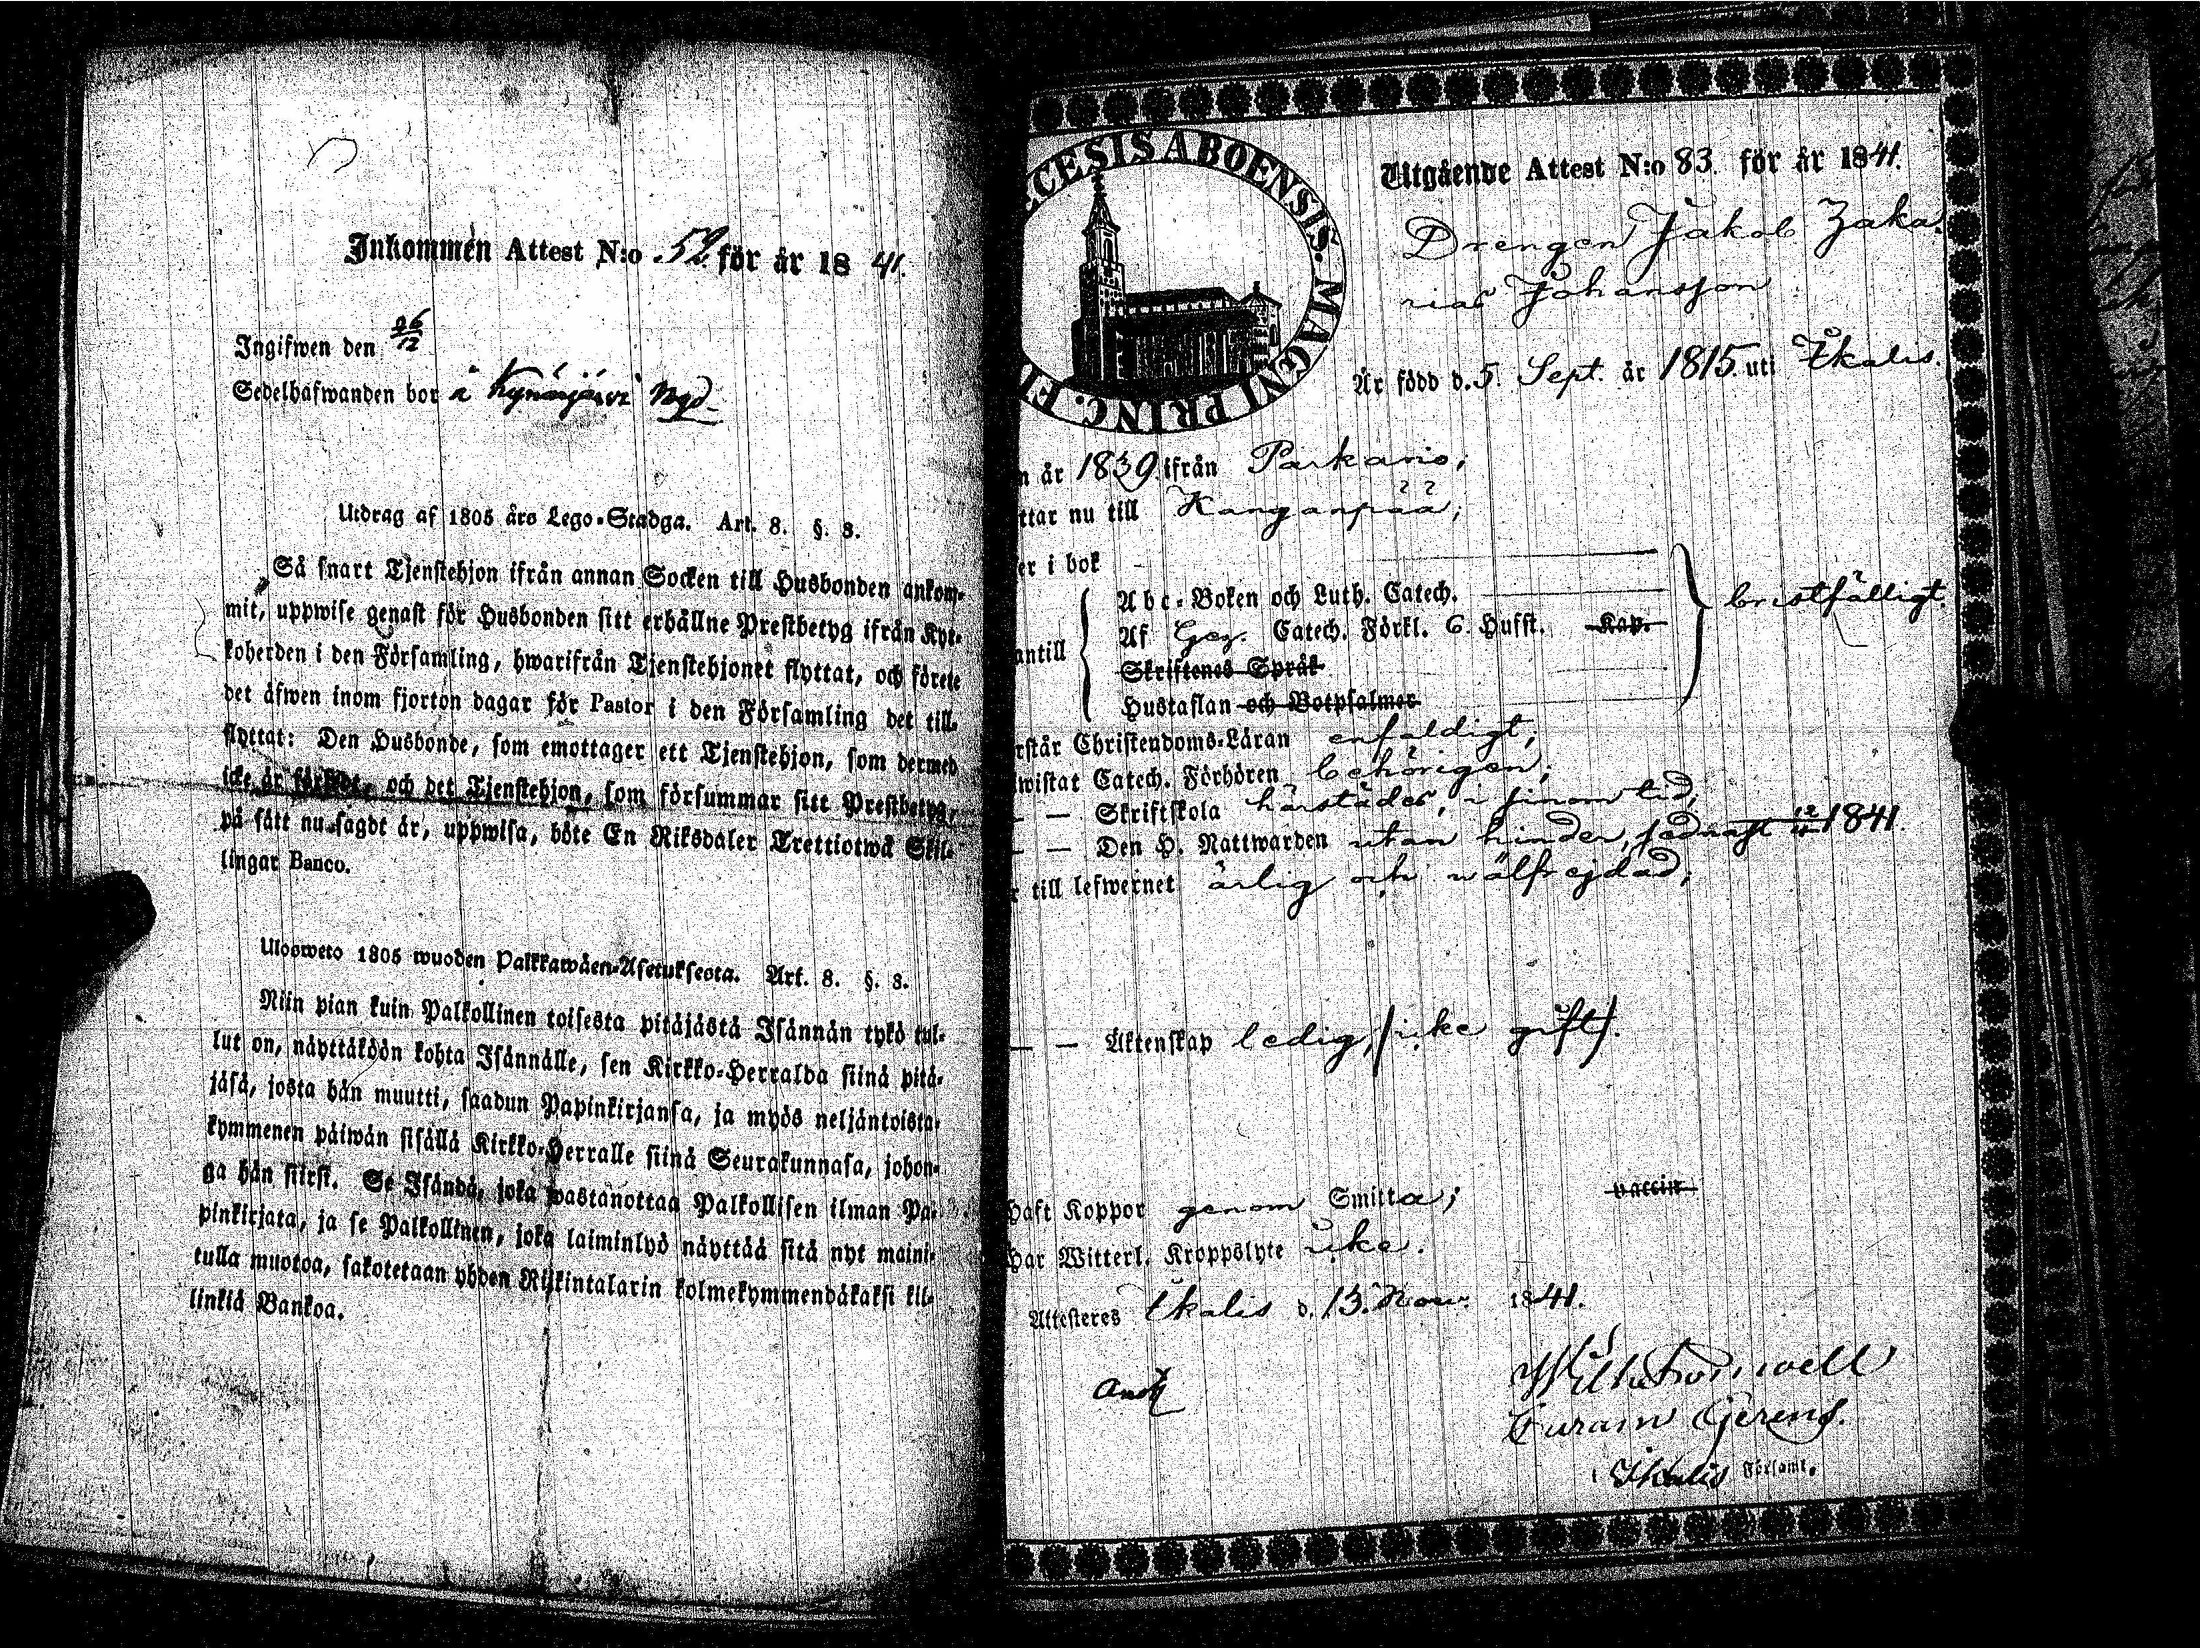 Inkommen Attest N:o 52 för år 18 41.
Ingifwen den 26/12
Sedelhafwanden bor i Kynäsjärvi
Utdrag af 1805 års Lego-Stadga. Art. 8. §. 3.
Så snart Tjenstehjon ifrån annan Socken till Husbonden ankom-
mit, uppwise genast för Husbonden sitt erhållne Prestbetyg ifrån Kyr-
koherden i den Församling, hwarifrån Tjenstehjonet flyttat, och förete
det äfwen inom fjorton dagar för Pastor i den Församling det till-
flyttat: Den Husbonde, som emottager ett Tjenstehjon, som dermed
icke är försedt, och det Tjenstehjon, som försummar sitt Prestbetyg,
på sätt nu sagdt är, uppwisa, böte En Riksdaler Trettiotwå Skil-
lingar Banco.
Ulosweto 1805 wuoden Palkkawäen-Asetuksesta. Art. 8. §. 3.
Niin pian kuin Palkollinen toisesta pitäjästä Isännän tykö tul-
lut on, näyttäköön kohta Isännälle, sen Kirkko-Herralda siinä pitä-
jäsä, josta hän muutti, saadun Papinkirjansa, ja myös neljäntoista-
kymmenen päiwän sisällä Kirkko-Herralle siinä Seurakunnasa, johon-
ga hän siirst. Se Isändä, joka wastanottaa Palkollisen ilman Pa-
pinkirjata, ja se Palkollinen, joka laiminlyö näyttää sitä nyt maini-
tulla muotoa, sakotetaan yhden Riikintalarin kolmekymmendäkaksi kil-
linkiä Bankoa.
ECESIS ABOENSIS. MAGNI PRINC. FI
Utgående Attest N:o 83. för år 1841.
Drengen Jakob Zaka-
rias Johansson
Är född d. 5. Sept. år 1815. uti Ikalis.
n år 1839. ifrån Parkano;
ttar nu till Kanganpää;
er i bok
Abc-Boken och Luth. Catech.
antill Af Gez. Catech. Förkl. 6. Hufst. Kap. bristfälligt.
Skriftenes Språk
Hustaflan och Botpsalmer
rstår Christendoms-Läran enfaldigt;
wistat Catech. Förhören behörigen;
— — Skriftskola härstädes, i sinom tid,
— — Den H. Nattwarden utan hinder, sednast 12/11 1841.
r till lefwernet ärlig och wälfrejdad;
— — Äktenskap ledig, (icke gift).
haft Koppor genom Smitta; vaccin
har Witterl. Kroppslyte icke.
Attesteres Ikalis d. 13. Nov. 1841.
Curam Gerens.
Ikalis Församl.